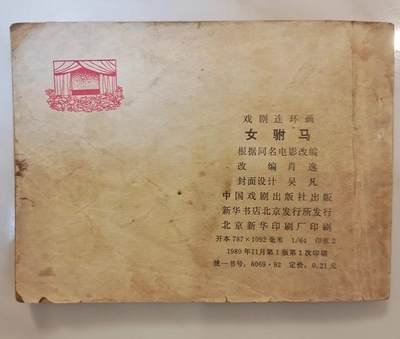 戏剧连环画
女驸马
根据同名电影改编
改编 肖逸
封面设计 吴凡
中国戏剧出版社出版
新华书店北京发行所发行
北京新华印刷厂印刷
开本 787×1092毫米 1/64 印张2
1980年11月第1版第1次印刷
统一书号：8069·92 定价：0.21元